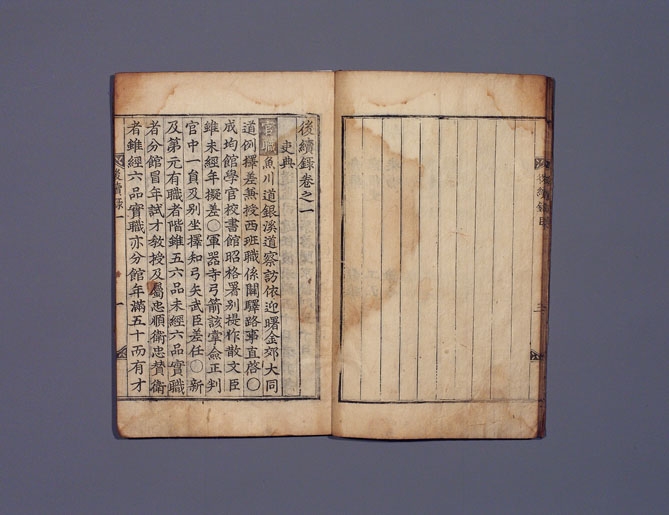 後續錄目
三
後續錄卷之一
吏典
官職魚川道銀溪道察訪依迎曙金郊大同
道例擇差無授西班職係關驛路事直啓○
成均館學官校書館昭格署別提作散文臣
雖未經年擬差○軍器寺弓箭該掌僉正判
官中一員及別坐擇知弓矢武臣差任○新
及第元有職者階雖五六品未經六品實職
者分館冒年試才敎授及屬忠順衛忠贊衛
者雖經六品實職亦分館年滿五十而有才
後續錄一
一